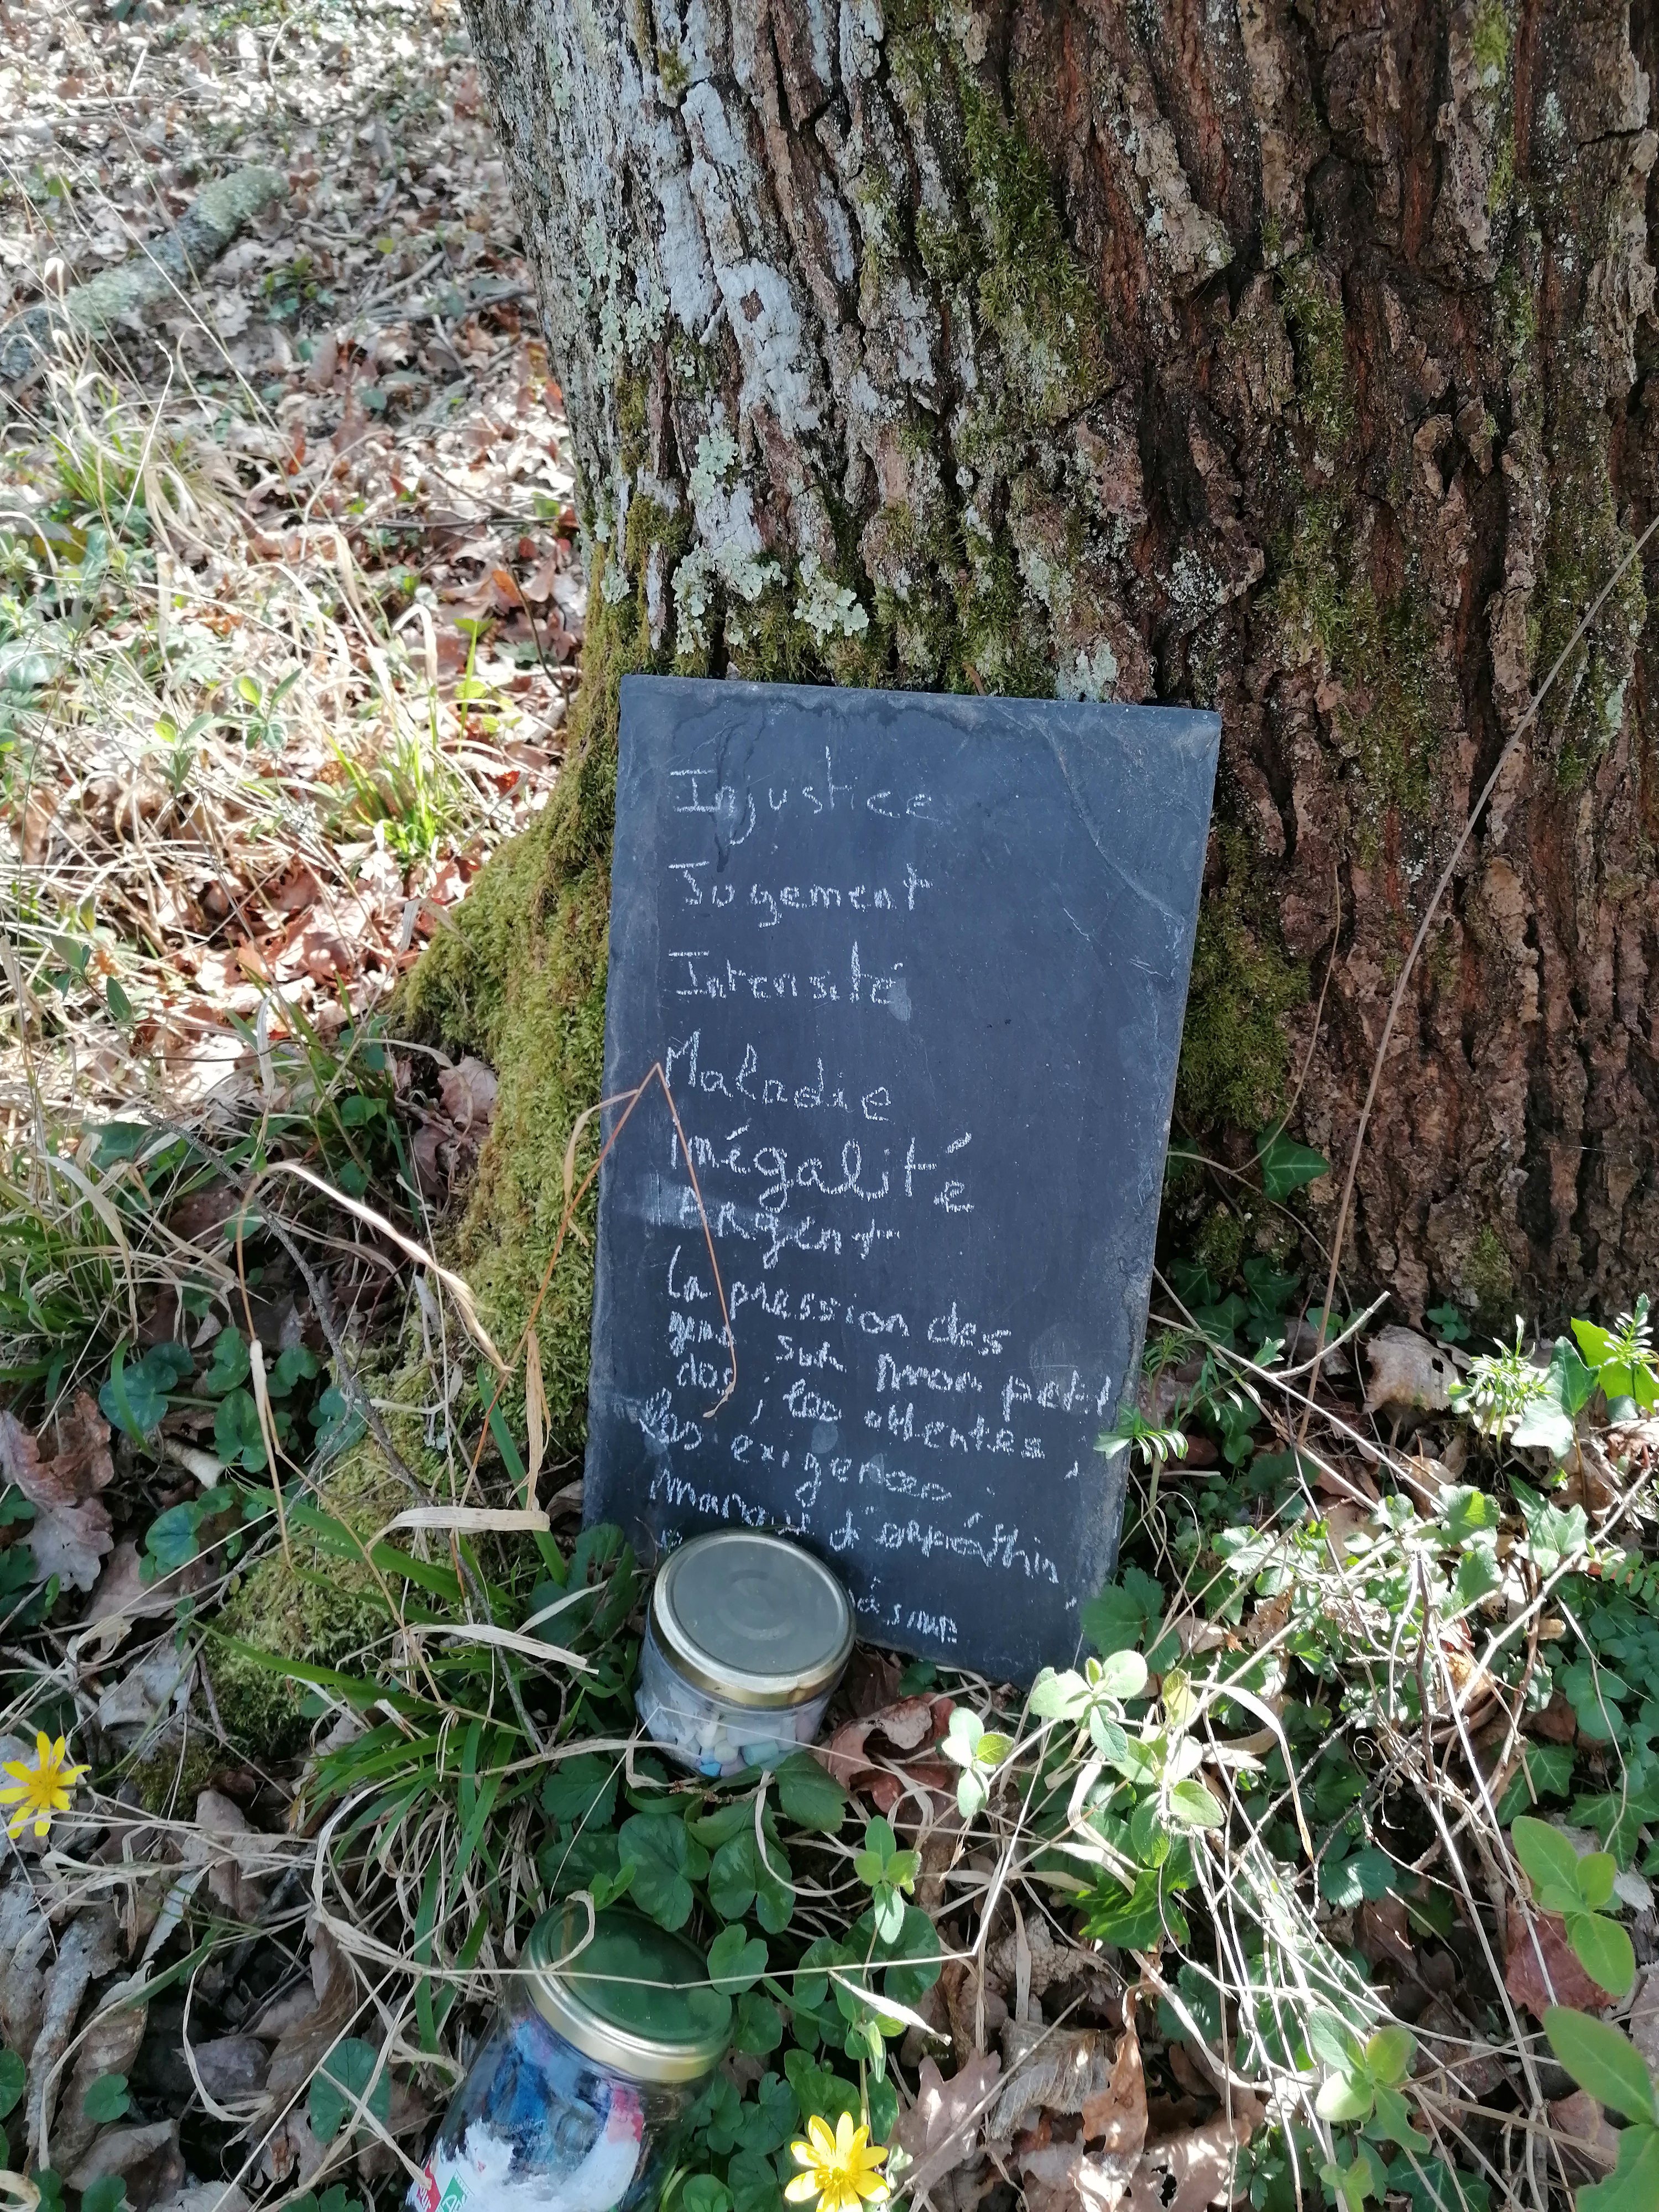 Injustice
Jugement
Intensité
Maladie
Inégalité
ARgent
la pression des
gens sur mon petit
dos ; les attentes
les exigences
manque d'empathie